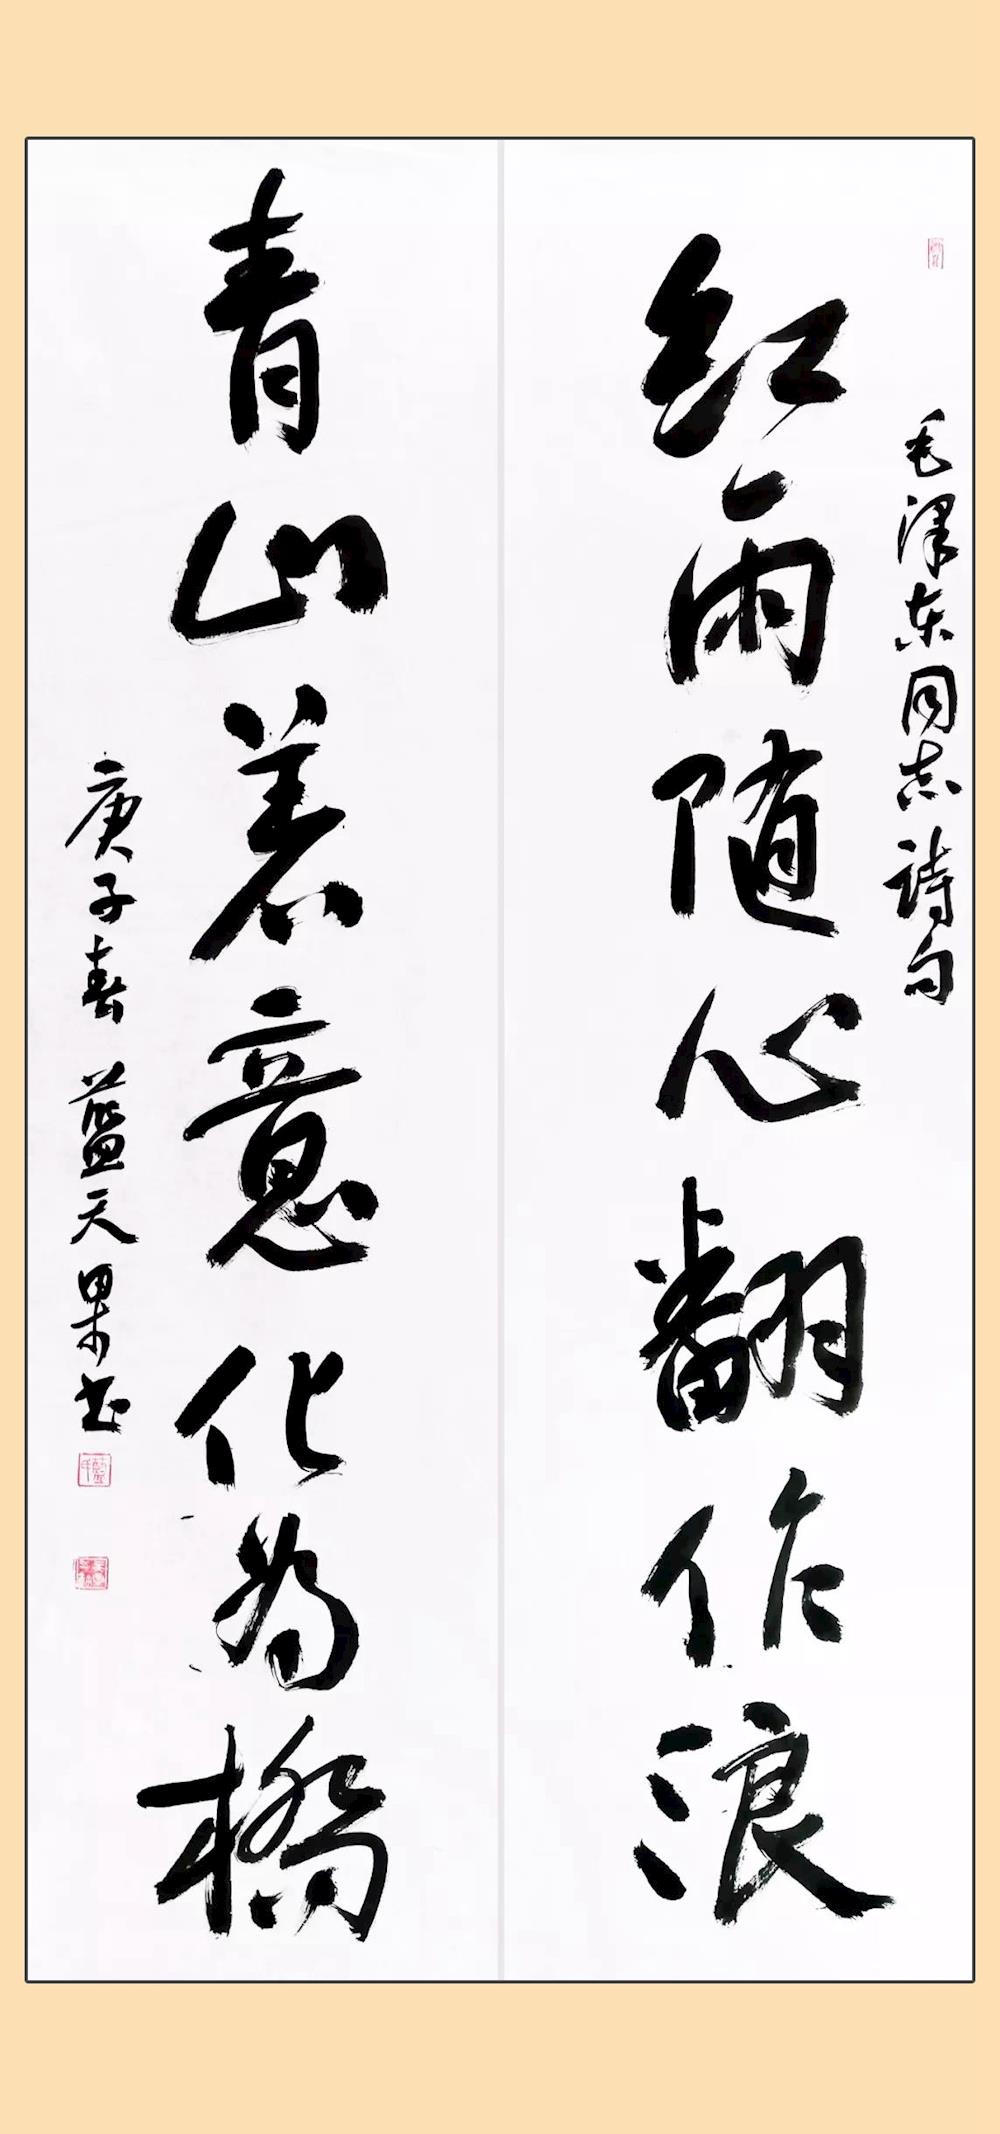 毛泽东同志诗句
红雨随心翻作浪
青山着意化为橋
庚子春 蓝天果书